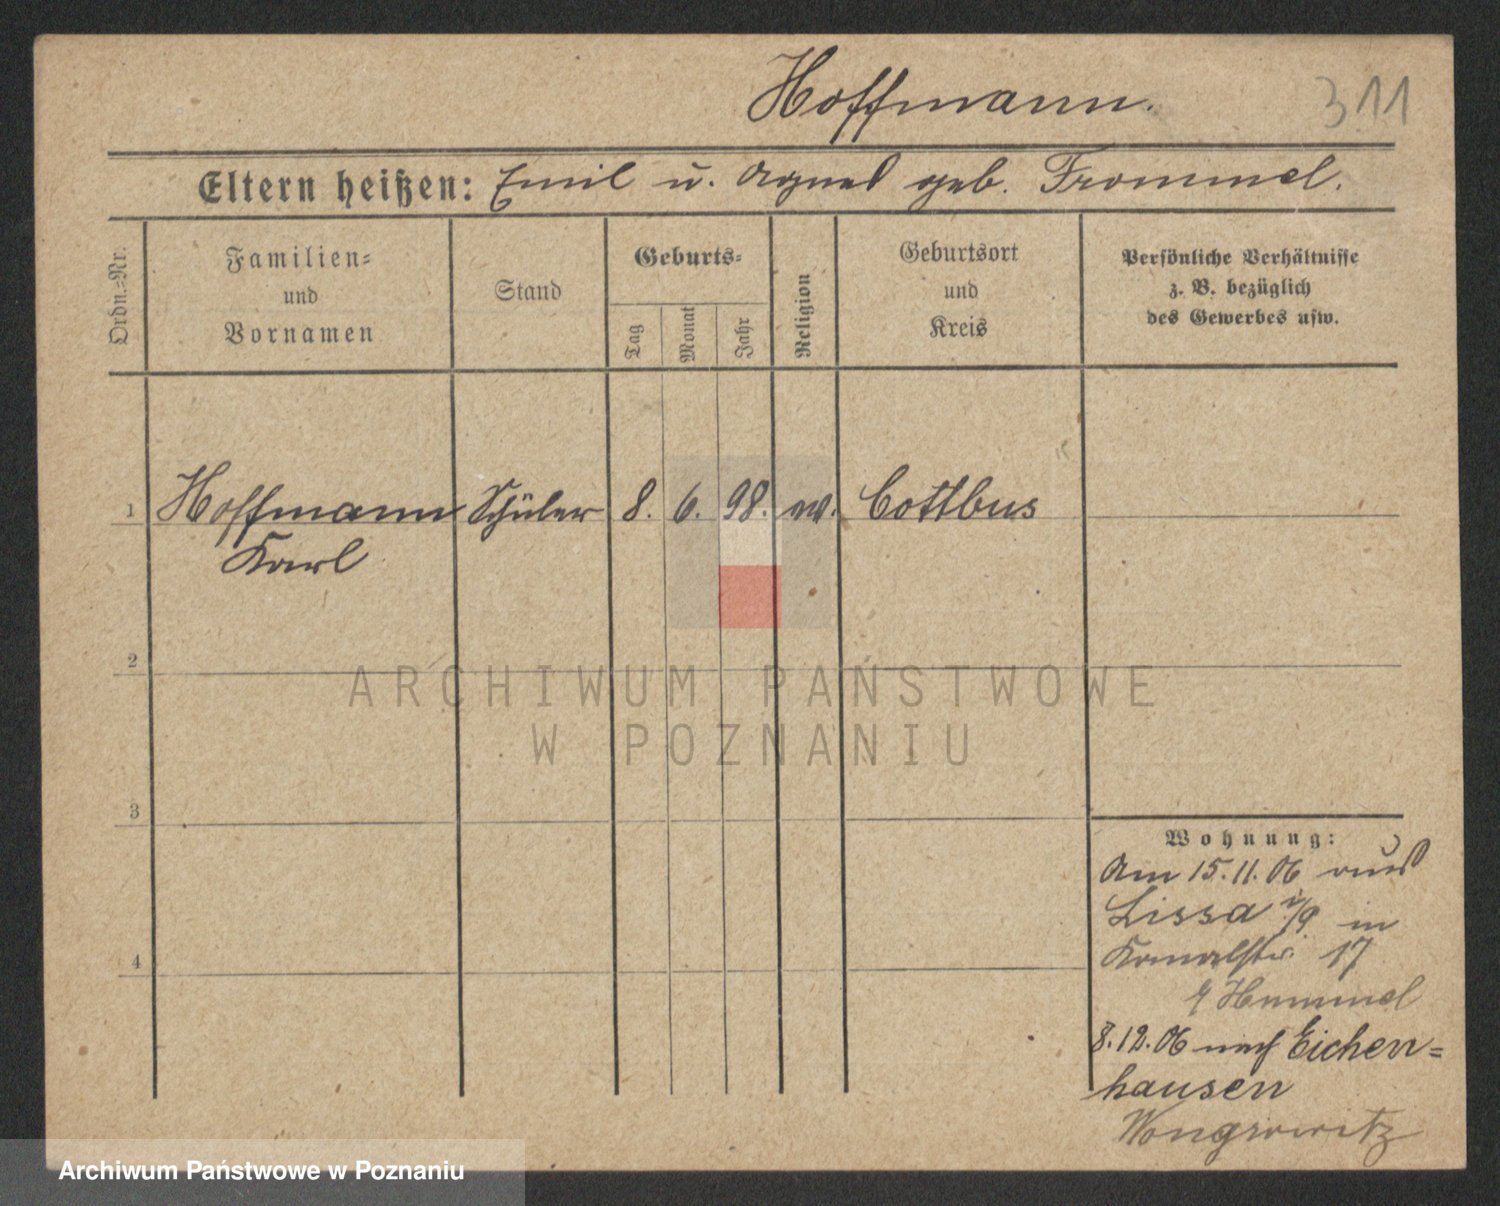 Hoffmann. 311
Eltern heißen: Emil u. Agnes geb. Frommel.
Ordn.=Nr.
Familien=
und
Vornamen
Stand
Geburts=
Tag
Monat
Jahr
Religion
Geburtsort
und
Kreis
Persönliche Verhältnisse
z. B. bezüglich
des Gewerbes usw.
1 Hoffmann Schüler 8. 6. 98. ev. Cottbus
Karl
2
3
4
Wohnung:
Am 15.11.06 aus
Lissa i/P in
Kanalstr. 17
Hummel
8.12.06 nach Eichen=
hausen
Wongrowitz
ARCHIWUM PAŃSTWOWE
W POZNANIU
Archiwum Państwowe w Poznaniu